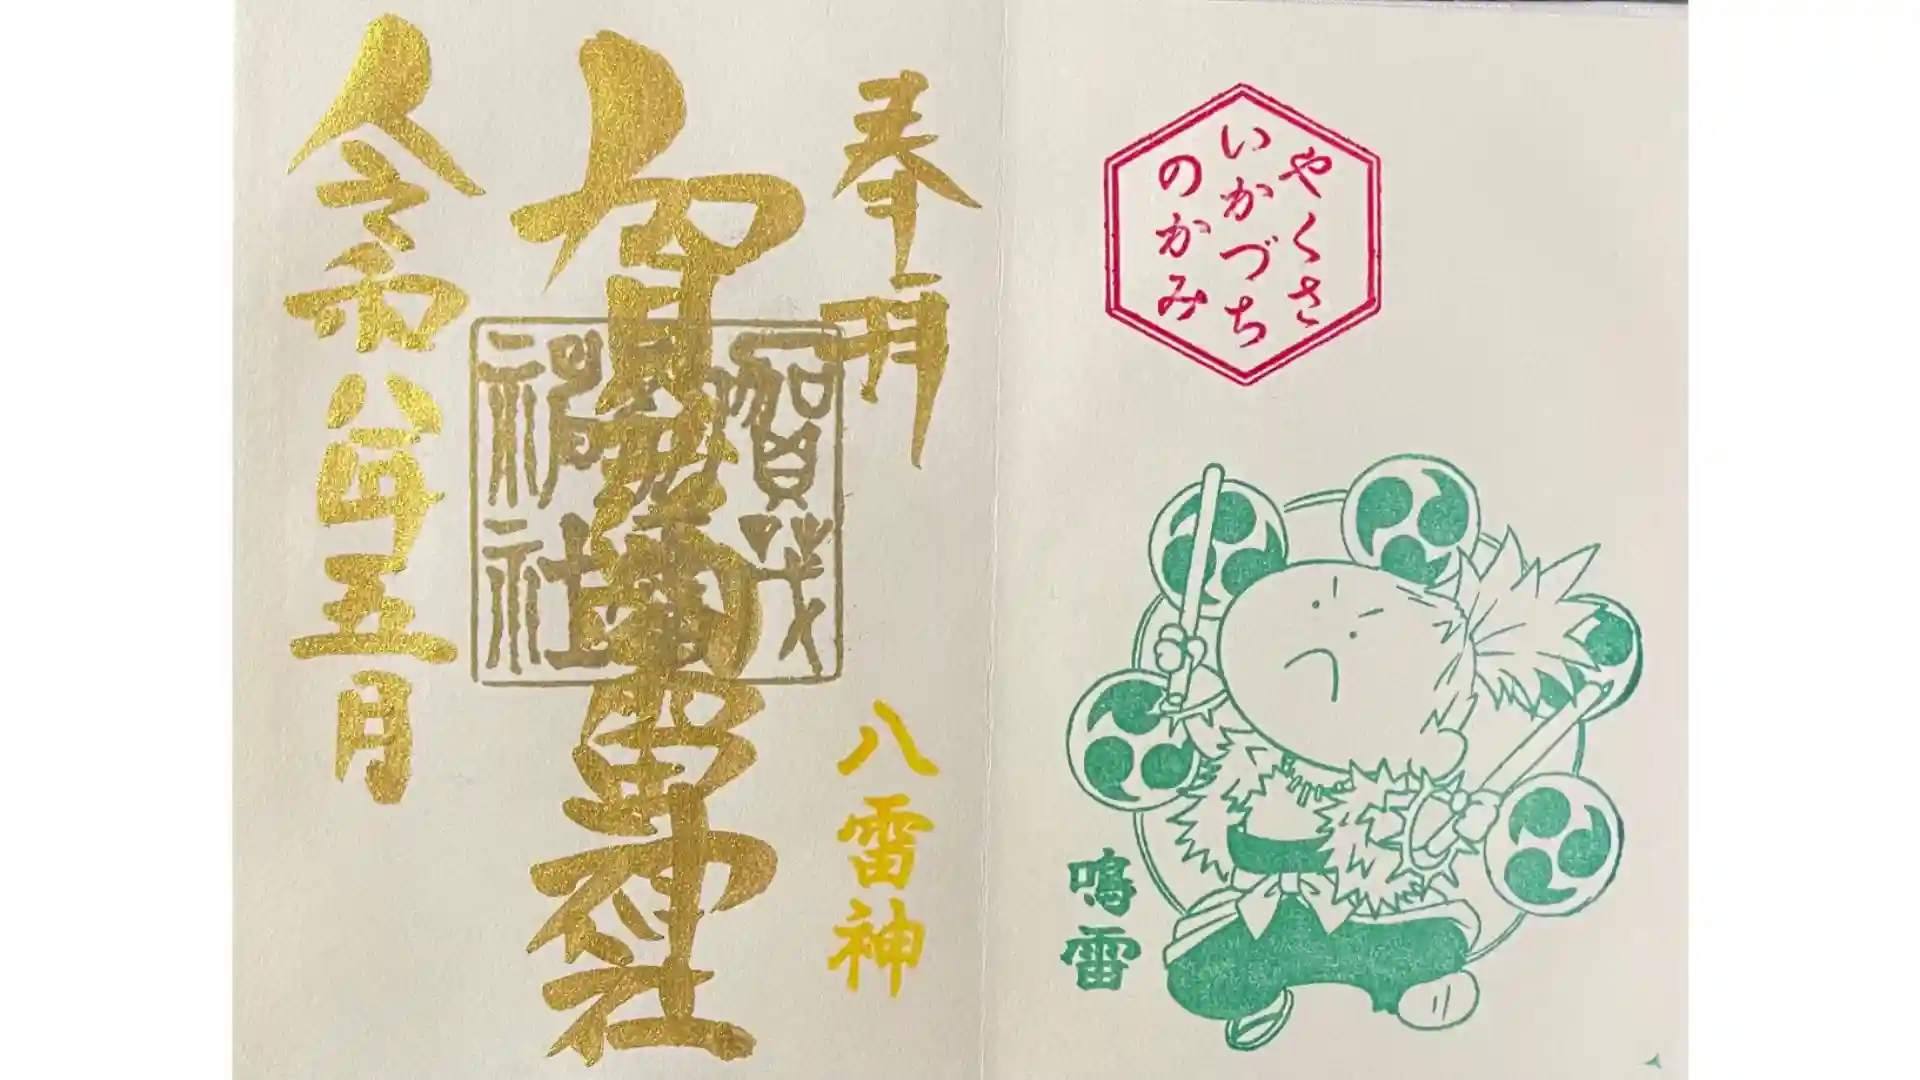 やくさ
いかづち
のかみ
鳴雷
奉拝
八雷神
賀茂別雷神社
賀茂
別雷
神社
令和八年五月